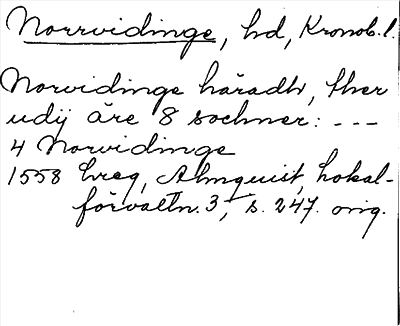 Norrvidinge, hd, Kronob. l.
Norvidinge häradh, ther
udij äre 8 sochner: ---
4 Norvidinge
1558 Lreg, Almquist, Lokal-
förvaltn. 3, s. 247. orig.